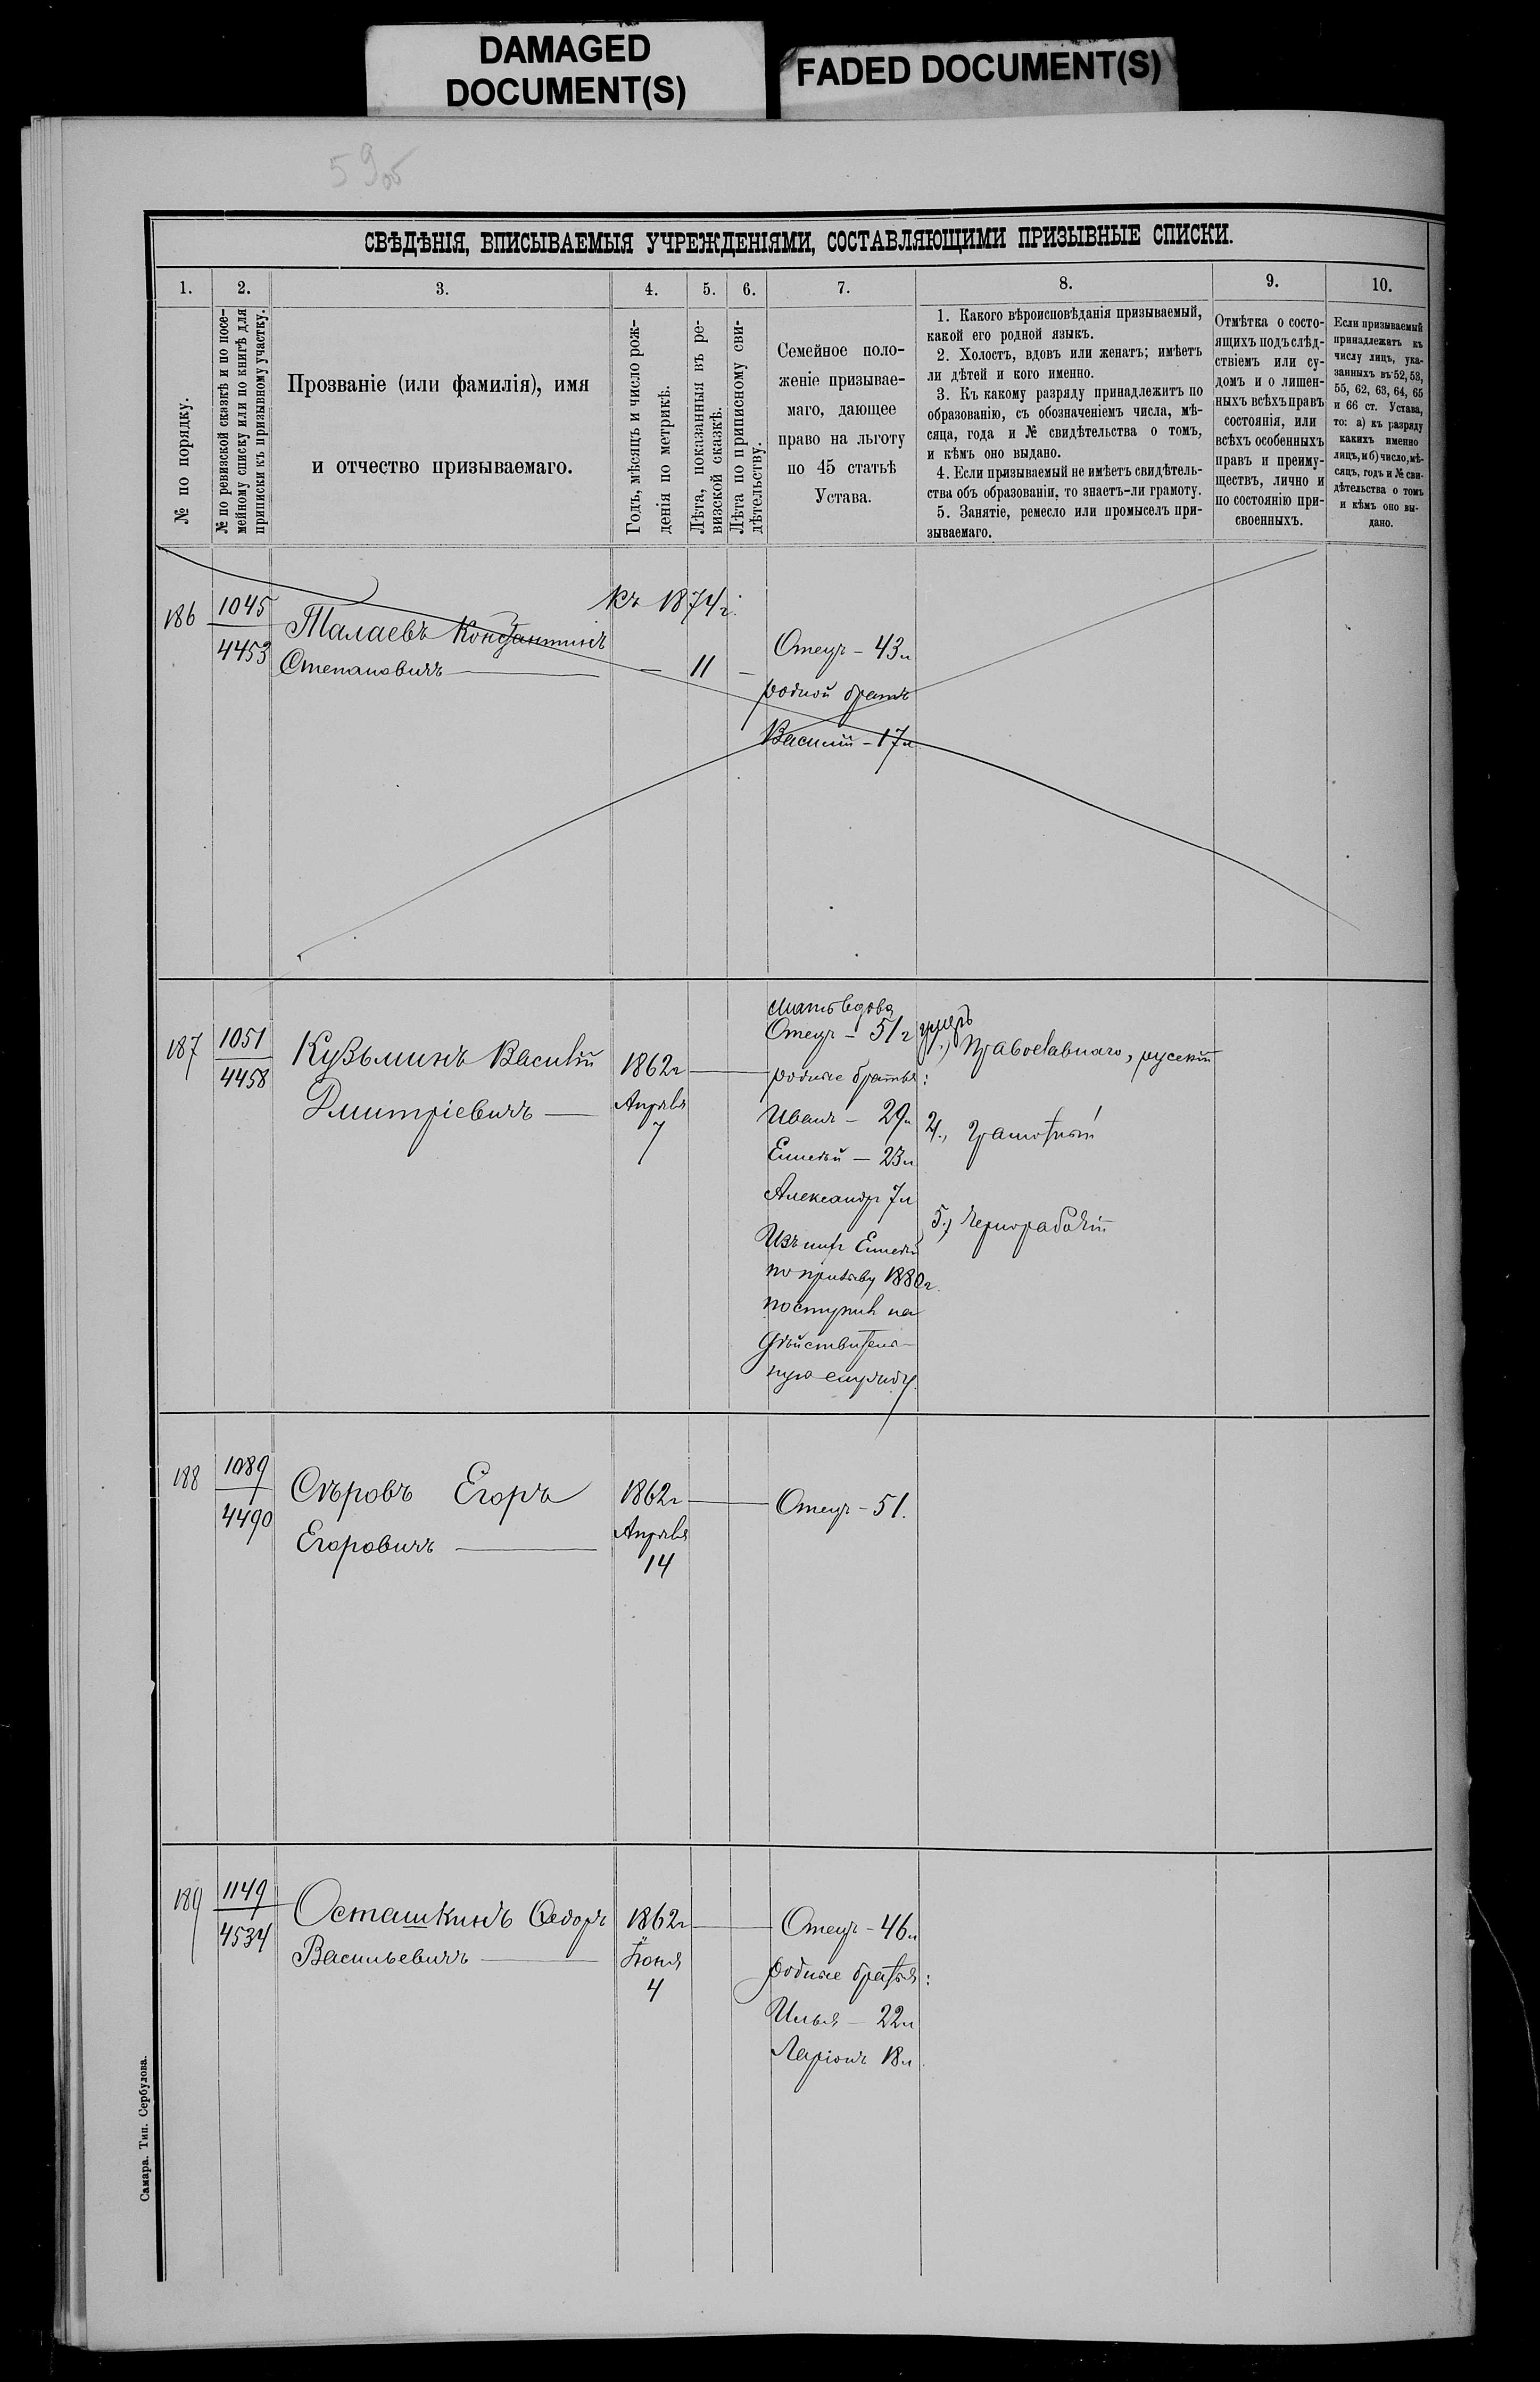 DAMAGED
DOCUMENT(S)
FADED DOCUMENT(S)
59об
СВѢДѢНІЯ, ВПИСЫВАЕМЫЯ УЧРЕЖДЕНІЯМИ, СОСТАВЛЯЮЩИМИ ПРИЗЫВНЫЕ СПИСКИ.
1.
2.
3.
4.
5.
6.
7.
8.
9.
10.
№ по порядку.
№ по ревизской сказкѣ и по посе-
мейному списку или по книгѣ для
приписки къ призывному участку.
Прозваніе (или фамилія), имя
и отчество призываемаго.
Годъ, мѣсяцъ и число рож-
денія по метрикѣ.
Лѣта, показанныя въ ре-
визской сказкѣ.
Лѣта по приписному сви-
дѣтельству.
Семейное поло-
женіе призывае-
маго, дающее
право на льготу
по 45 статьѣ
Устава.
1. Какого вѣроисповѣданія призываемый,
какой его родной языкъ.
2. Холостъ, вдовъ или женатъ; имѣетъ
ли дѣтей и кого именно.
3. Къ какому разряду принадлежитъ по
образованію, съ обозначеніемъ числа, мѣ-
сяца, года и № свидѣтельства о томъ,
и кѣмъ оно выдано.
4. Если призываемый не имѣетъ свидѣтель-
ства объ образованіи, то знаетъ-ли грамоту.
5. Занятіе, ремесло или промыселъ при-
зываемаго.
Отмѣтка о состо-
ящихъ подъ слѣд-
ствіемъ или су-
домъ и о лишен-
ныхъ всѣхъ правъ
состоянія, или
всѣхъ особенныхъ
правъ и преиму-
ществъ, лично и
по состоянію при-
своенныхъ.
Если призываемый
принадлежатъ къ
числу лицъ, ука-
занныхъ въ 52, 53,
55, 62, 63, 64, 65
и 66 ст. Устава,
то: а) къ разряду
какихъ именно
лицъ, и б) число, мѣ-
сяцъ, годъ и № сви-
дѣтельства о томъ
и кѣмъ оно вы-
дано.
186
1045
4453
Талаевъ Константинъ
Степановичъ
къ 1874г.
11
Отецъ - 43л
родной братъ
Василій - 17л
187
1051
4458
Кузьминъ Василій
Дмитріевичъ
1862г
Апрѣля
7
мать вдова
Отецъ - 51г умеръ
родные братья:
Иванъ - 29л
Емелій - 23л
Александръ 7л
Изъ нихъ Емелій
по призыву 1880г
поступилъ на
дѣйствитель-
ную службу.
1., Православнаго, русскій
4., Грамотный
5., Чернорабочій
188
1089
4490
Сѣровъ Егоръ
Егоровичъ
1862г
Апрѣля
14
Отецъ - 51.
189
1149
4534
Осташкинъ Ѳедоръ
Васильевичъ
1862г
Іюня
4
Отецъ - 46л
родные братья:
Илья - 22л
Ларіонъ 18л
Самара. Тип. Сербулова.